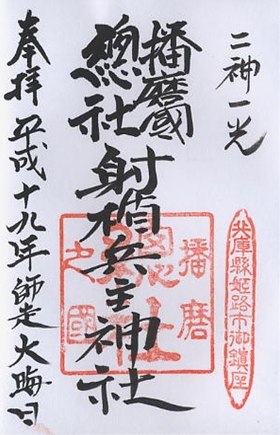 二神一光
兵庫縣姫路市御鎮座
播磨國
總社 射楯兵主神社
播磨
總社
之國
奉拝 平成十九年師走大晦日